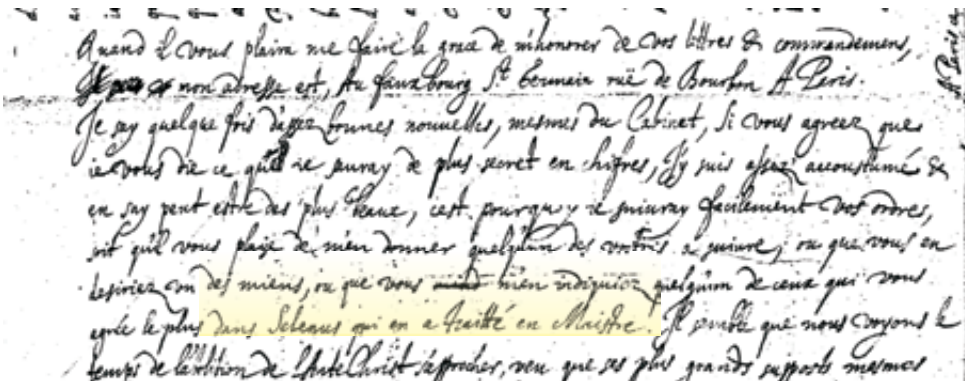 Quand Il vous plaira me faire la grace de m'honorer de vos lettres & commandemens,
mon adresse est, Au fauxbourg St. Germain ruë de Bourbon A Paris.
Je say quelque fois d'assez bonnes nouvelles, mesmes du Cabinet, Si vous agreez que
ie vous die ce que ie sauray de plus secret en chifres, J'y suis assez accoustumé &
en say peut estre des plus beaux, c'est pourquoy ie suiuray facilement vos ordres,
soit qu'il vous plaise de m'en donner quelqu'un des vostres a suiure, ou que vous en
desiriez un des miens, ou que vous m'en indiquiez quelqu'un de ceux qui vous
agrée le plus dans Selenus qui en a traitté en Maistre. Il semble que nous voyons le
temps de l'abolition de l'AnteChrist s'approcher, veu que ses plus grands supposts mesmes
A Paris